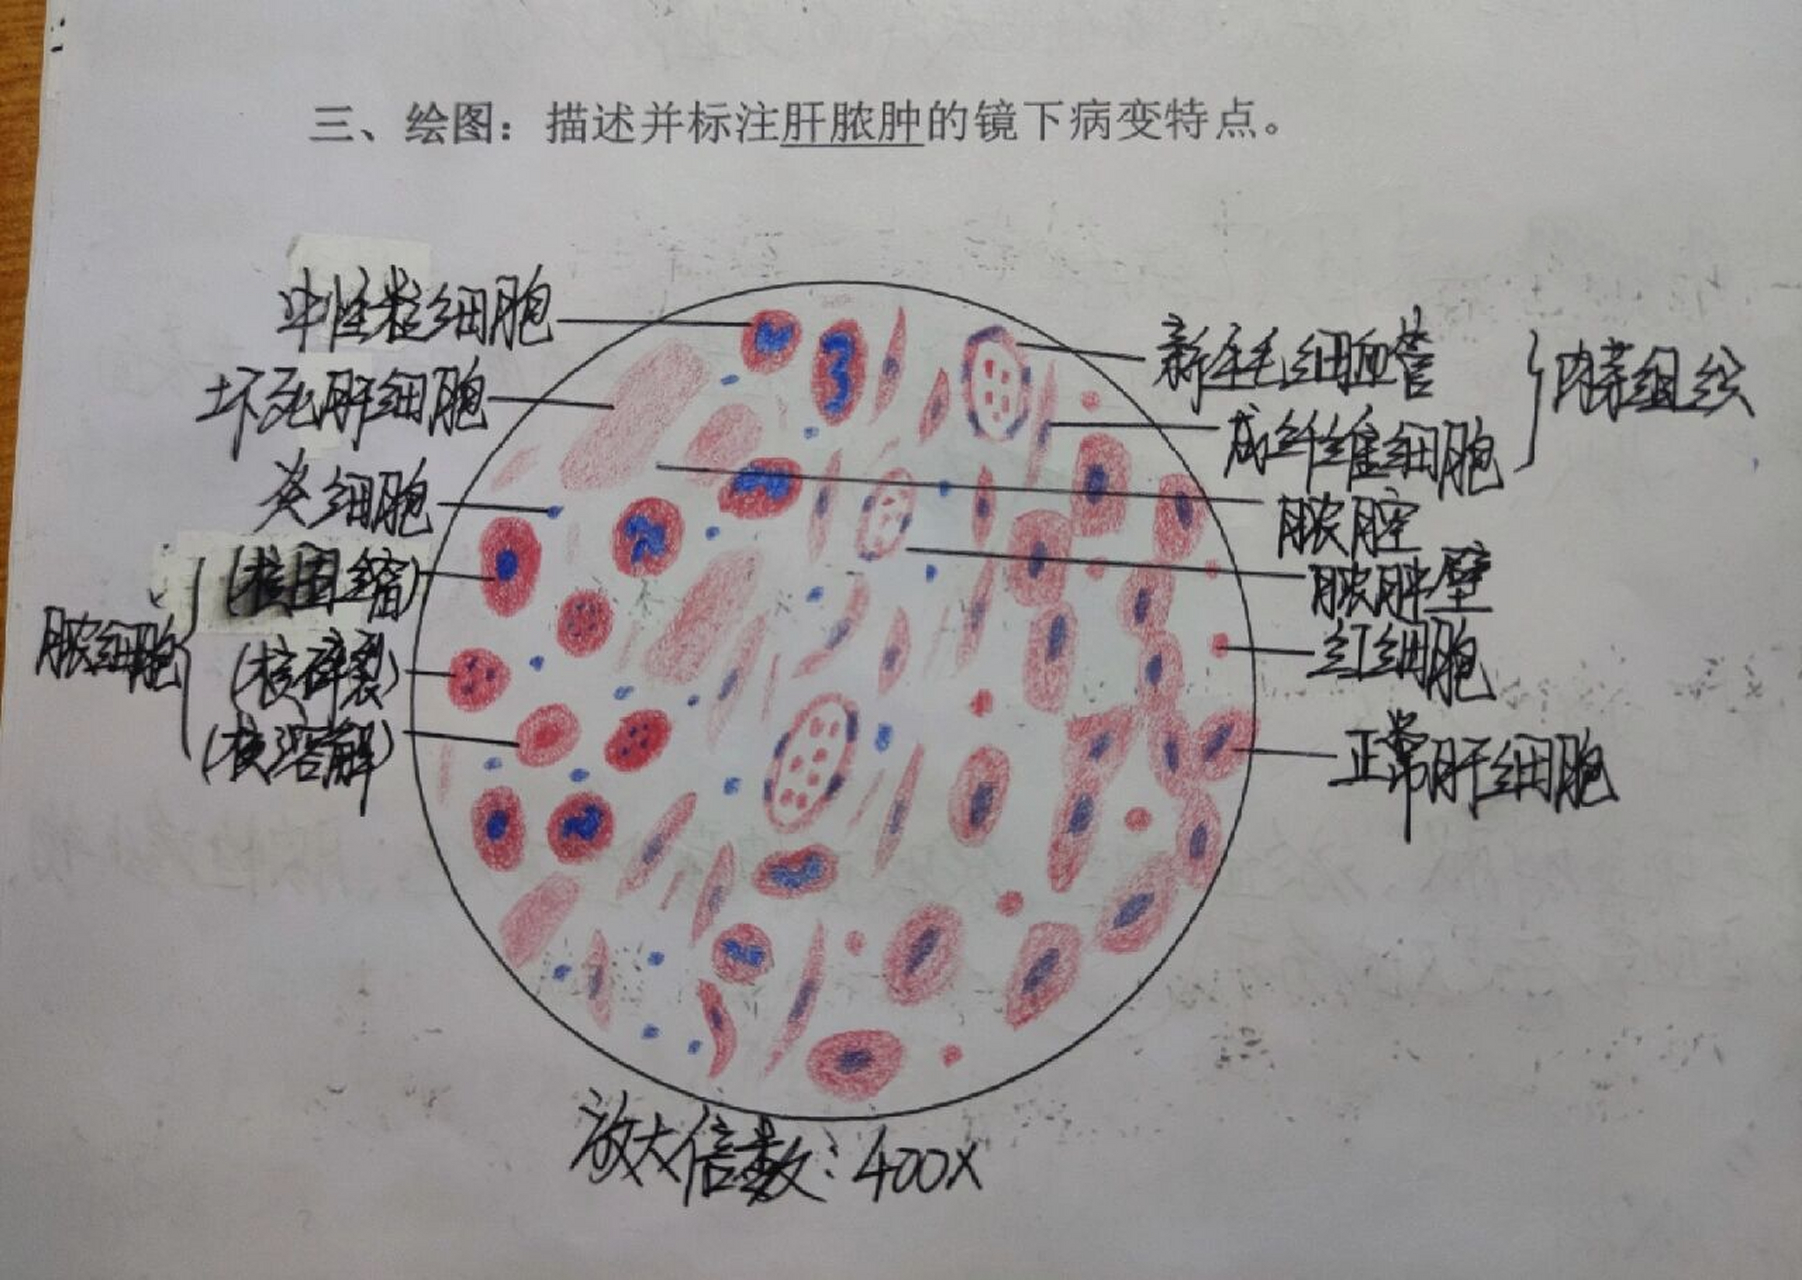 三、绘图：描述并标注肝脓肿的镜下病变特点。
中性粒细胞
坏死肝细胞
炎细胞
脓细胞
(核固缩)
(核碎裂)
(核溶解)
新生毛细血管
成纤维细胞
肉芽组织
脓腔
脓肿壁
红细胞
正常肝细胞
放大倍数：400X